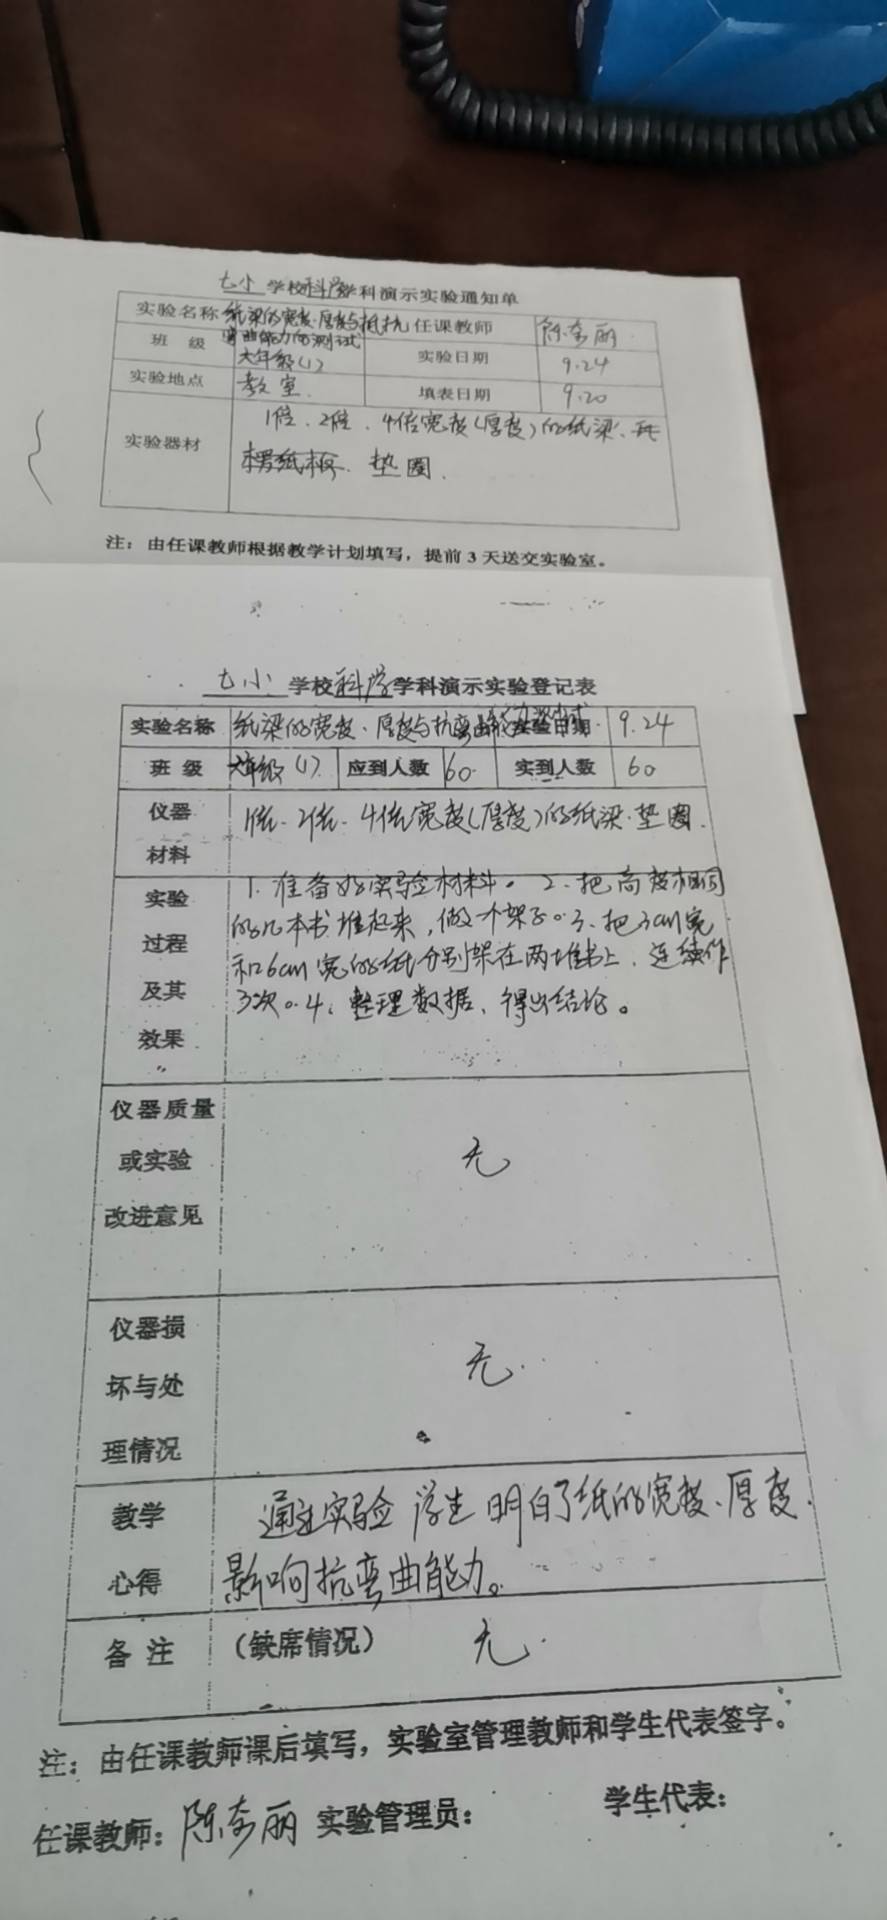 七小 学校科学学科演示实验通知单
实验名称 纸梁的宽度、厚度与抵抗弯曲能力的测试 任课教师 陈 丽
班 级 六年级(1) 实验日期 9.24
实验地点 教室 填表日期 9.20
实验器材 1倍、2倍、4倍宽度(厚度)的纸梁、
纸板、垫圈
注：由任课教师根据教学计划填写，提前3天送交实验室。
七小 学校科学学科演示实验登记表
实验名称 纸梁的宽度、厚度与抗弯曲 实验日期 9.24
班 级 六年级(1) 应到人数 60 实到人数 60
仪器 1倍、2倍、4倍宽度(厚度)的纸梁、垫圈
材料
实验 1、准备好实验材料。2、把高度相同
过程 的几本书堆起来，做个架子。3、把3cm宽
及其 和6cm宽的纸分别架在两堆书上，连续作
效果 3次。4、整理数据，得出结论。
仪器质量
或实验 无
改进意见
仪器损
坏与处 无
理情况
教学 通过实验 学生明白了纸的宽度、厚度
心得 影响抗弯曲能力。
备 注 (缺席情况) 无
注：由任课教师课后填写，实验室管理教师和学生代表签字。
任课教师：陈 丽 实验管理员： 学生代表：